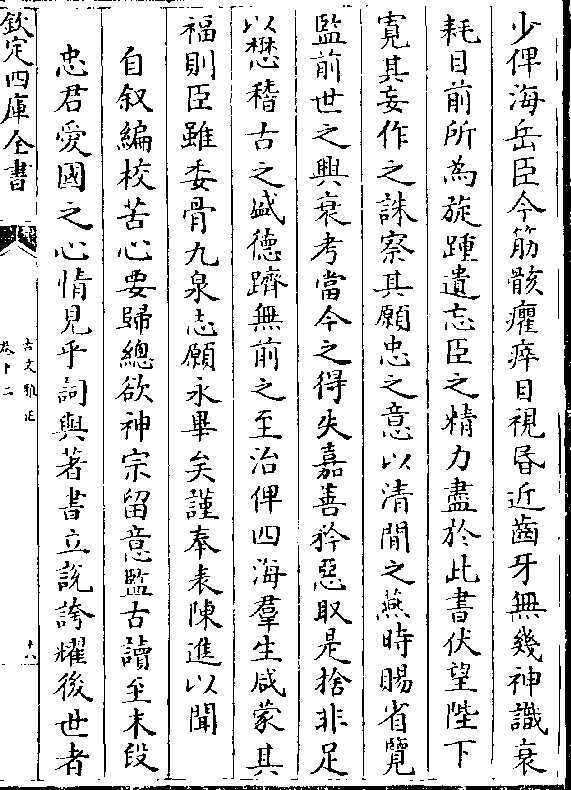 少俾海岳臣今筋骸癯瘁目視昏近齒牙無幾神識衰
耗目前所為旋踵遺忘臣之精力盡於此書伏望陛下
寛其妄作之誅察其願忠之意以清閒之燕時賜省覽
監前世之興衰考當今之得失嘉善矜惡取是捨非足
以懋稽古之盛德躋無前之至治俾四海羣生咸蒙其
福則臣雖委骨九泉志願永畢矣謹奉表陳進以聞
自叙編校苦心要歸總欲神宗留意監古讀至末段
忠君愛國之心情見乎詞與著書立說誇耀後世者
欽定四庫全書
古文雅正
卷十二
十八